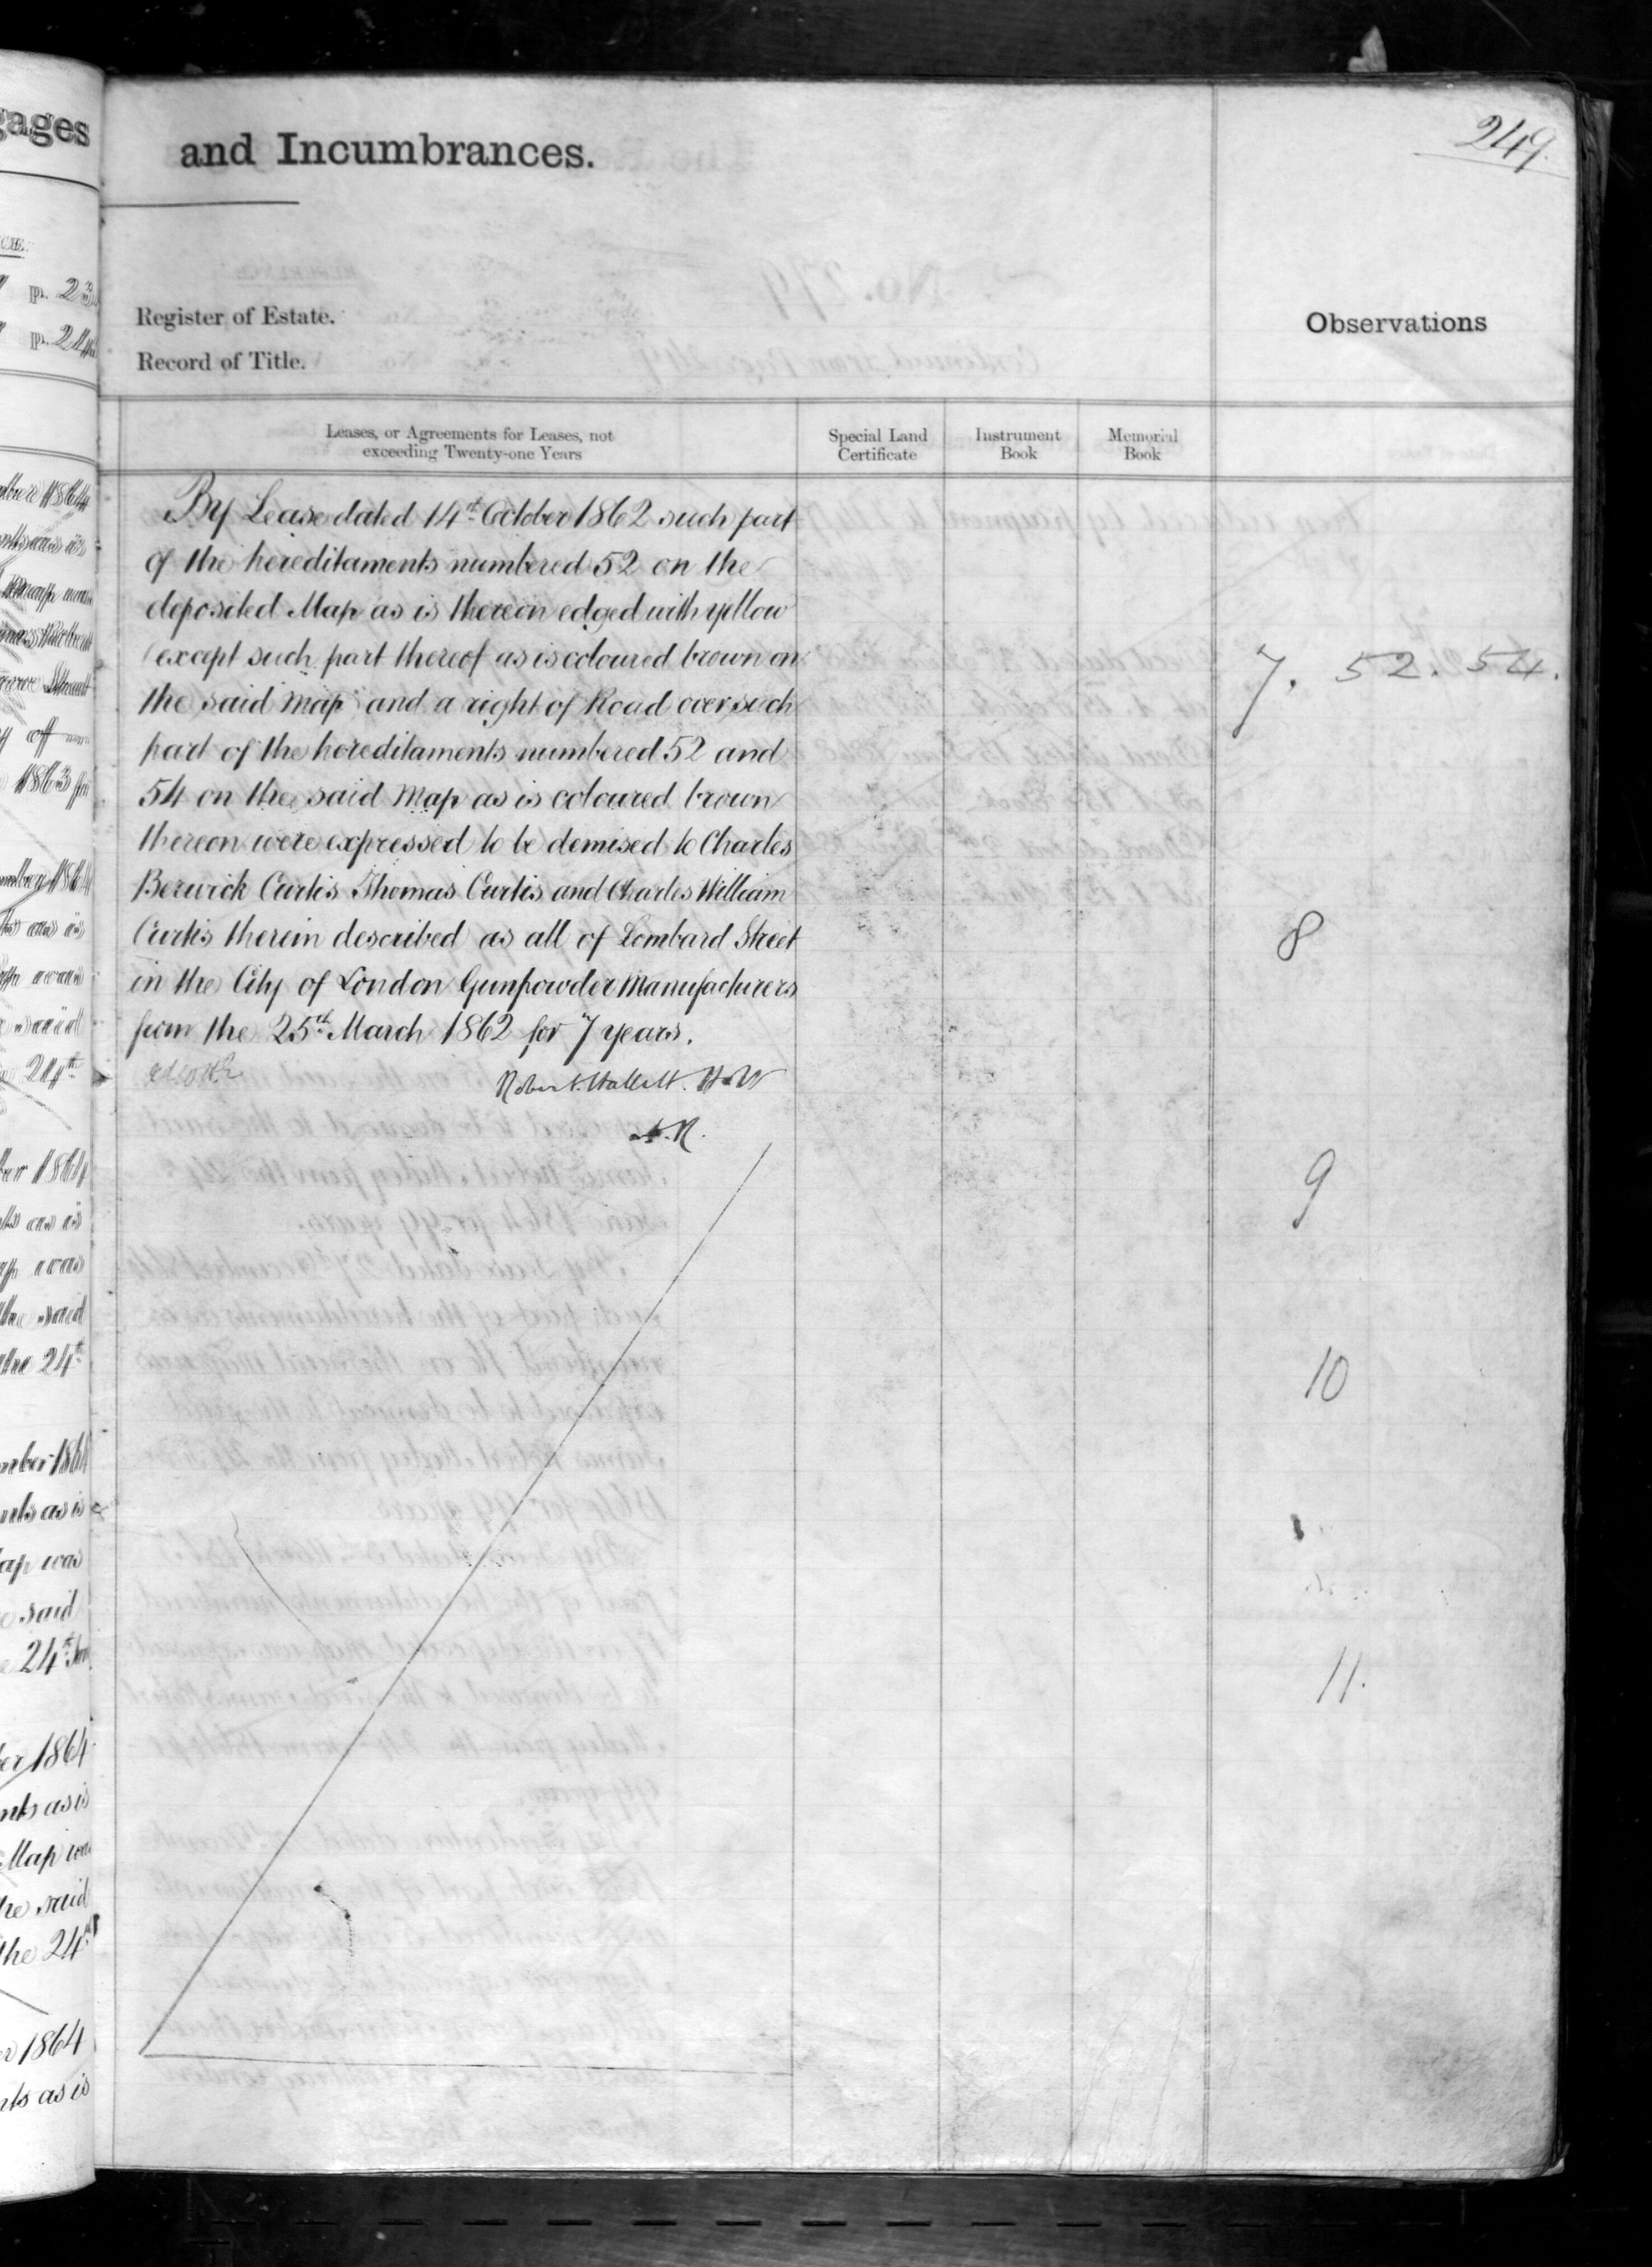 249.
and Incumbrances.
Register of Estate.
Record of Title.
Observations
Leases, or Agreements for Leases, not
exceeding Twenty-one Years
Special Land
Certificate
Instrument
Book
Memorial
Book
By Lease dated 14th October 1862 such part
of the hereditaments numbered 52 on the
deposited Map as is thereon edged with yellow
(except such part thereof as is coloured brown on
the said Map) and a right of Road over such
part of the hereditaments numbered 52 and
54 on the said Map as is coloured brown
thereon were expressed to be demised to Charles
Berwick Curtis Thomas Curtis and Charles William
Curtis therein described as all of Lombard Street
in the City of London Gunpowder Manufacturers
from the 25th March 1862 for 7 years.
Robert Hallett.
7. 52. 54.
8
9
10
11.
gages
p. 23
p. 24
1864
1863
24th
1864
as is
was
said
the 24th
1864
as is
Map was
said
24th
1864
as is
Map
said
the 24th
1864
as is